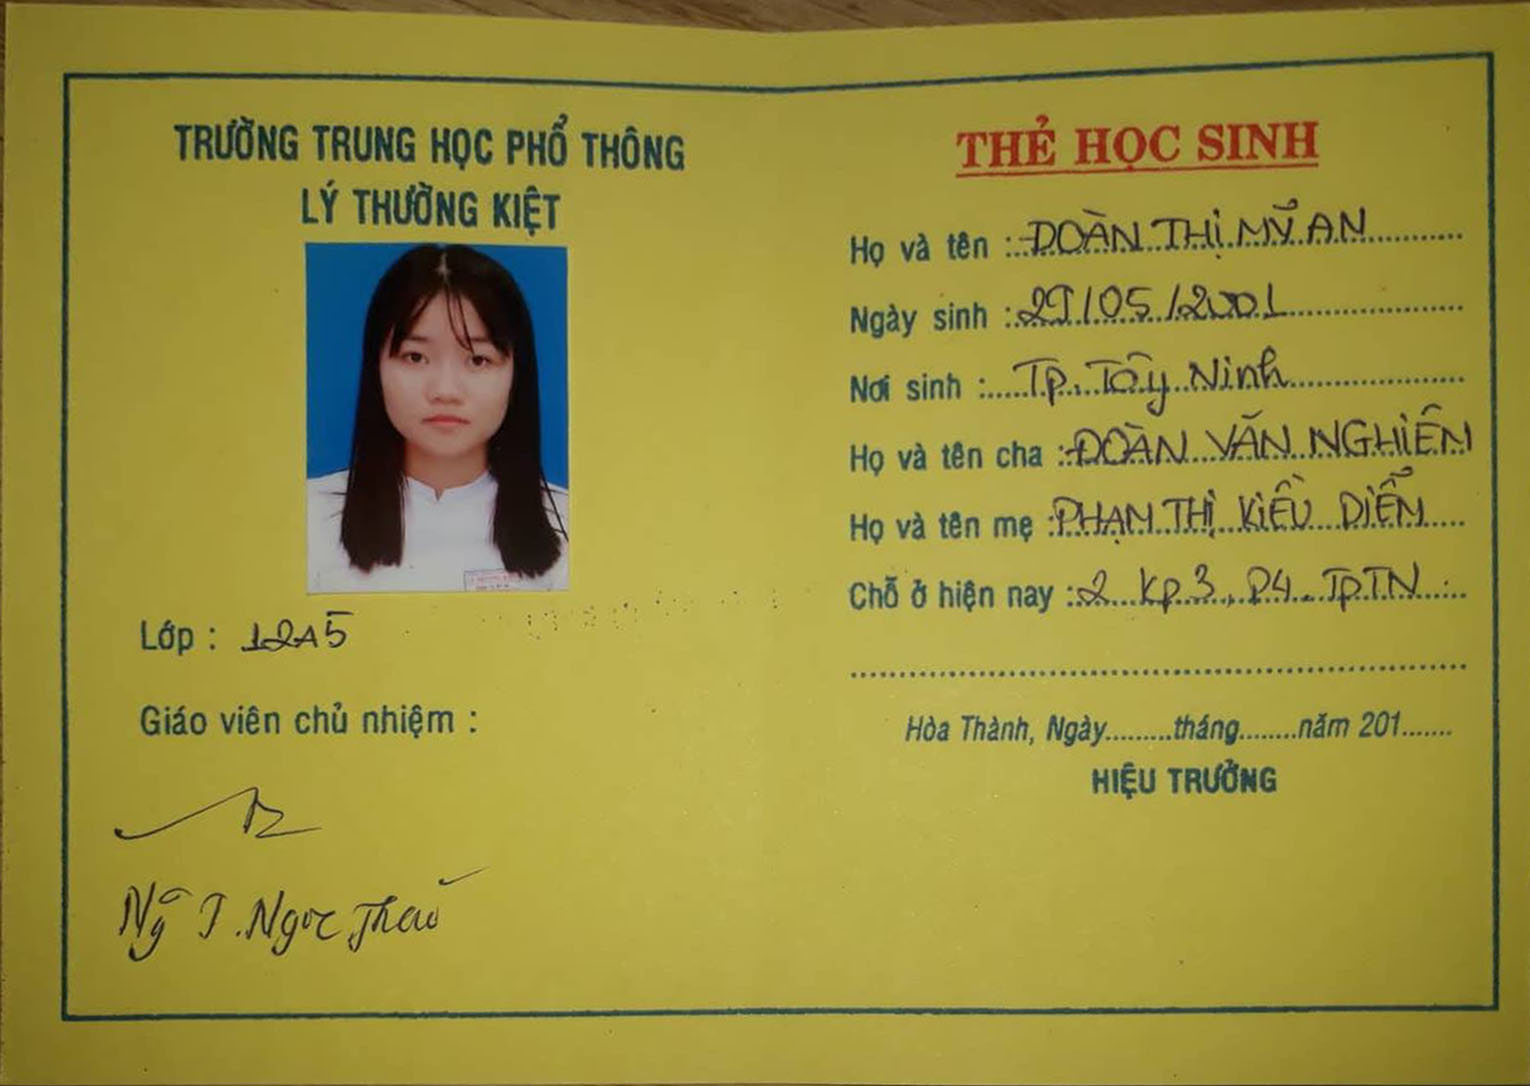 TRƯỜNG TRUNG HỌC PHỔ THÔNG
LÝ THƯỜNG KIỆT
Lớp : 12A5
Giáo viên chủ nhiệm :
Ng T. Ngọc Thảo
THẺ HỌC SINH
Họ và tên : ĐOÀN THỊ MỸ AN
Ngày sinh : 29/05/2001
Nơi sinh : Tp. Tây Ninh
Họ và tên cha : ĐOÀN VĂN NGHIÊM
Họ và tên mẹ : PHẠM THỊ KIỀU DIỄM
Chỗ ở hiện nay : 2 Kp3, P4. TpTN
Hòa Thành, Ngày.........tháng........năm 201.......
HIỆU TRƯỞNG